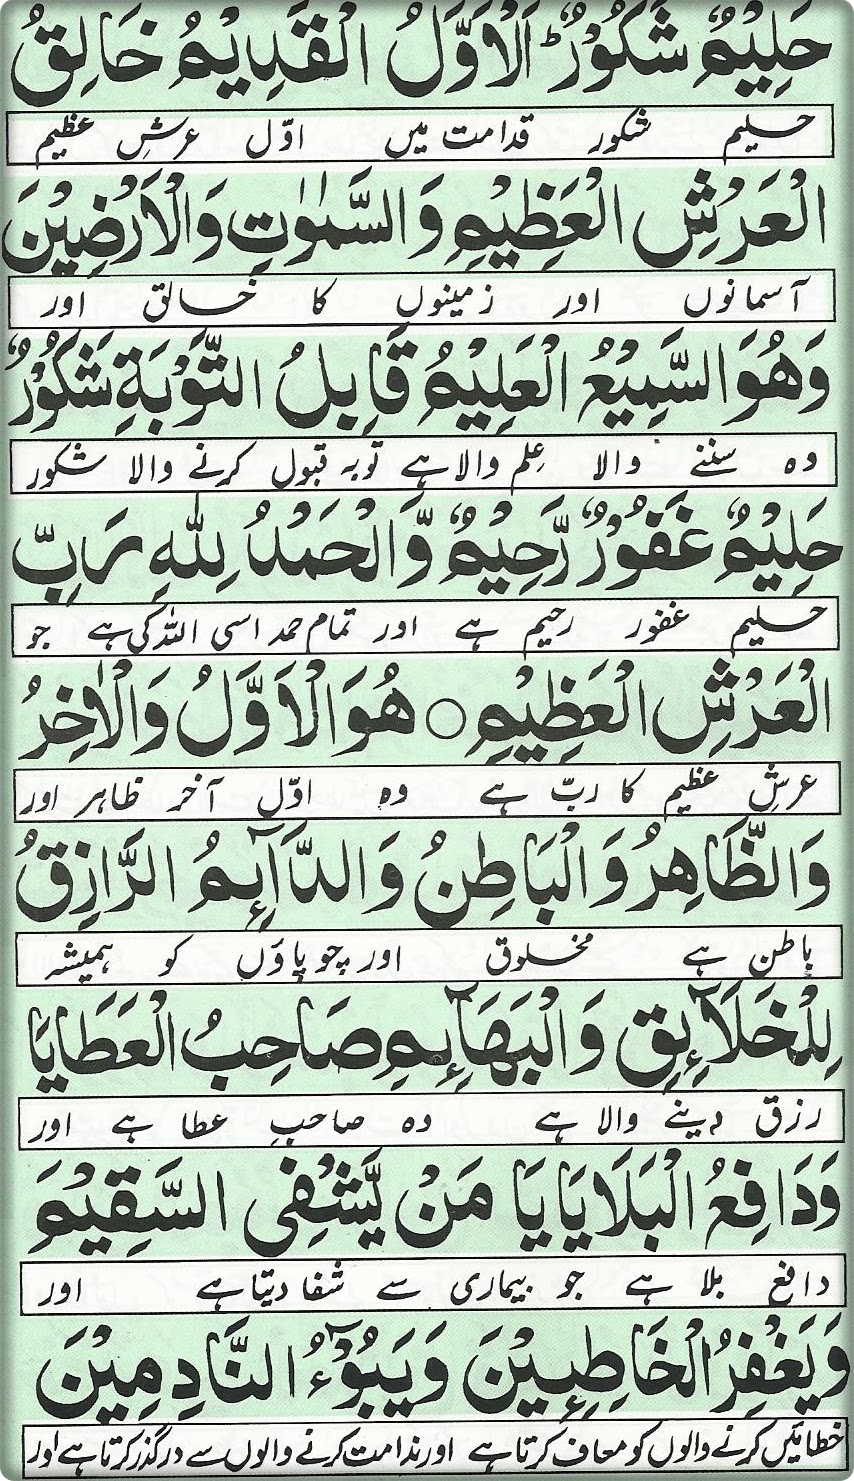 حَلِيْمٌ شَكُوْرٌ ۚ اَلْاَوَّلُ الْقَدِيْمُ خَالِقُ
حلیم شکور قدامت میں اوّل عرشِ عظیم
الْعَرْشِ الْعَظِيْمِ وَالسَّمٰوٰتِ وَالْاَرْضِيْنَ
آسمانوں اور زمینوں کا خالق اور
وَهُوَ السَّمِيْعُ الْعَلِيْمُ قَابِلُ التَّوْبَةِ شَكُوْرٌ
وہ سننے والا علم والا ہے توبہ قبول کرنے والا شکور
حَلِيْمٌ غَفُوْرٌ رَّحِيْمٌ وَّالْحَمْدُ لِلّٰهِ رَبِّ
حلیم غفور رحیم ہے اور تمام حمد اسی اللہ کی ہے جو
الْعَرْشِ الْعَظِيْمِ ○ هُوَ الْاَوَّلُ وَالْاٰخِرُ
عرشِ عظیم کا ربّ ہے وہ اوّل آخر ظاہر اور
وَالظَّاهِرُ وَالْبَاطِنُ وَالدَّآئِمُ الرَّازِقُ
باطن ہے مخلوق اور چوپاؤں کو ہمیشہ
لِلْخَلَآئِقِ وَالْبَهَآئِمِ صَاحِبُ الْعَطَايَا
رزق دینے والا ہے وہ صاحبِ عطا ہے اور
وَدَافِعُ الْبَلَايَا يَا مَنْ يَّشْفِى السَّقِيْمَ
دافع بلا ہے جو بیماری سے شفا دیتا ہے اور
وَيَغْفِرُ الْخَاطِئِيْنَ وَيَبُوْٓءُ النَّادِمِيْنَ
خطائیں کرنے والوں کو معاف کرتا ہے اور ندامت کرنے والوں سے درگذر کرتا ہے اور